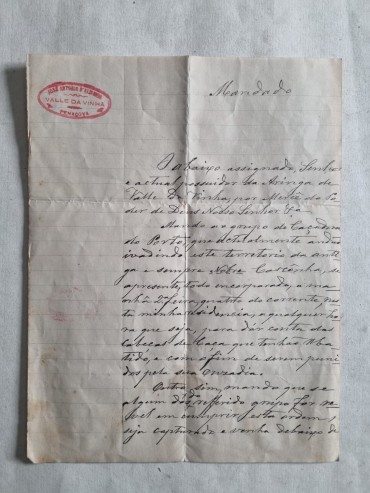 JOSÉ ANTONIO D'
VALLE DA VINHA
PENACOVA
Mandado
O abaixo assignado, Senhor
e actual possuidor da
Valle Da Vinha, por Mercê do Po
der de Deus Nosso Senhor &a
Mando ao grupo de Caçadores
do Porto, que actualmente anda
invadindo este territorio da anti
ga e sempre Nobre Casconha, se
apresente, todo encorporado, a ma
nhã 2ª feira, quatro do corrente, nes
ta minha residencia, a qualquer ho
ra que seja, para dár conta das
cabeças de Caça que tenham aba
tido, e com o fim de serem puni
dos pela sua ouzadia.
Outro sim, mando que se
algum do referido grupo fôr re
vel em cumprir esta ordem
seja capturado e venha debaixo de